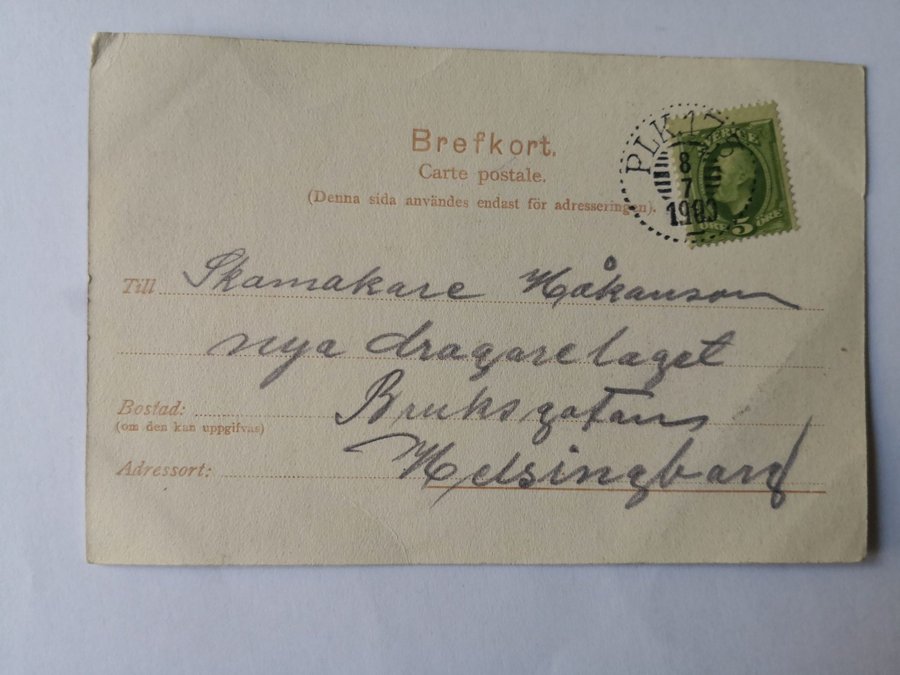 Brefkort.
Carte postale.
(Denna sida användes endast för adresseringen).
SVERIGE
ÖRE 5 ÖRE
PLK.
8
7
1903
Till Skamakare Håkanson
nya dragarelaget
Bostad: Bruksgatan
(om den kan uppgifvas)
Adressort: Helsingborg